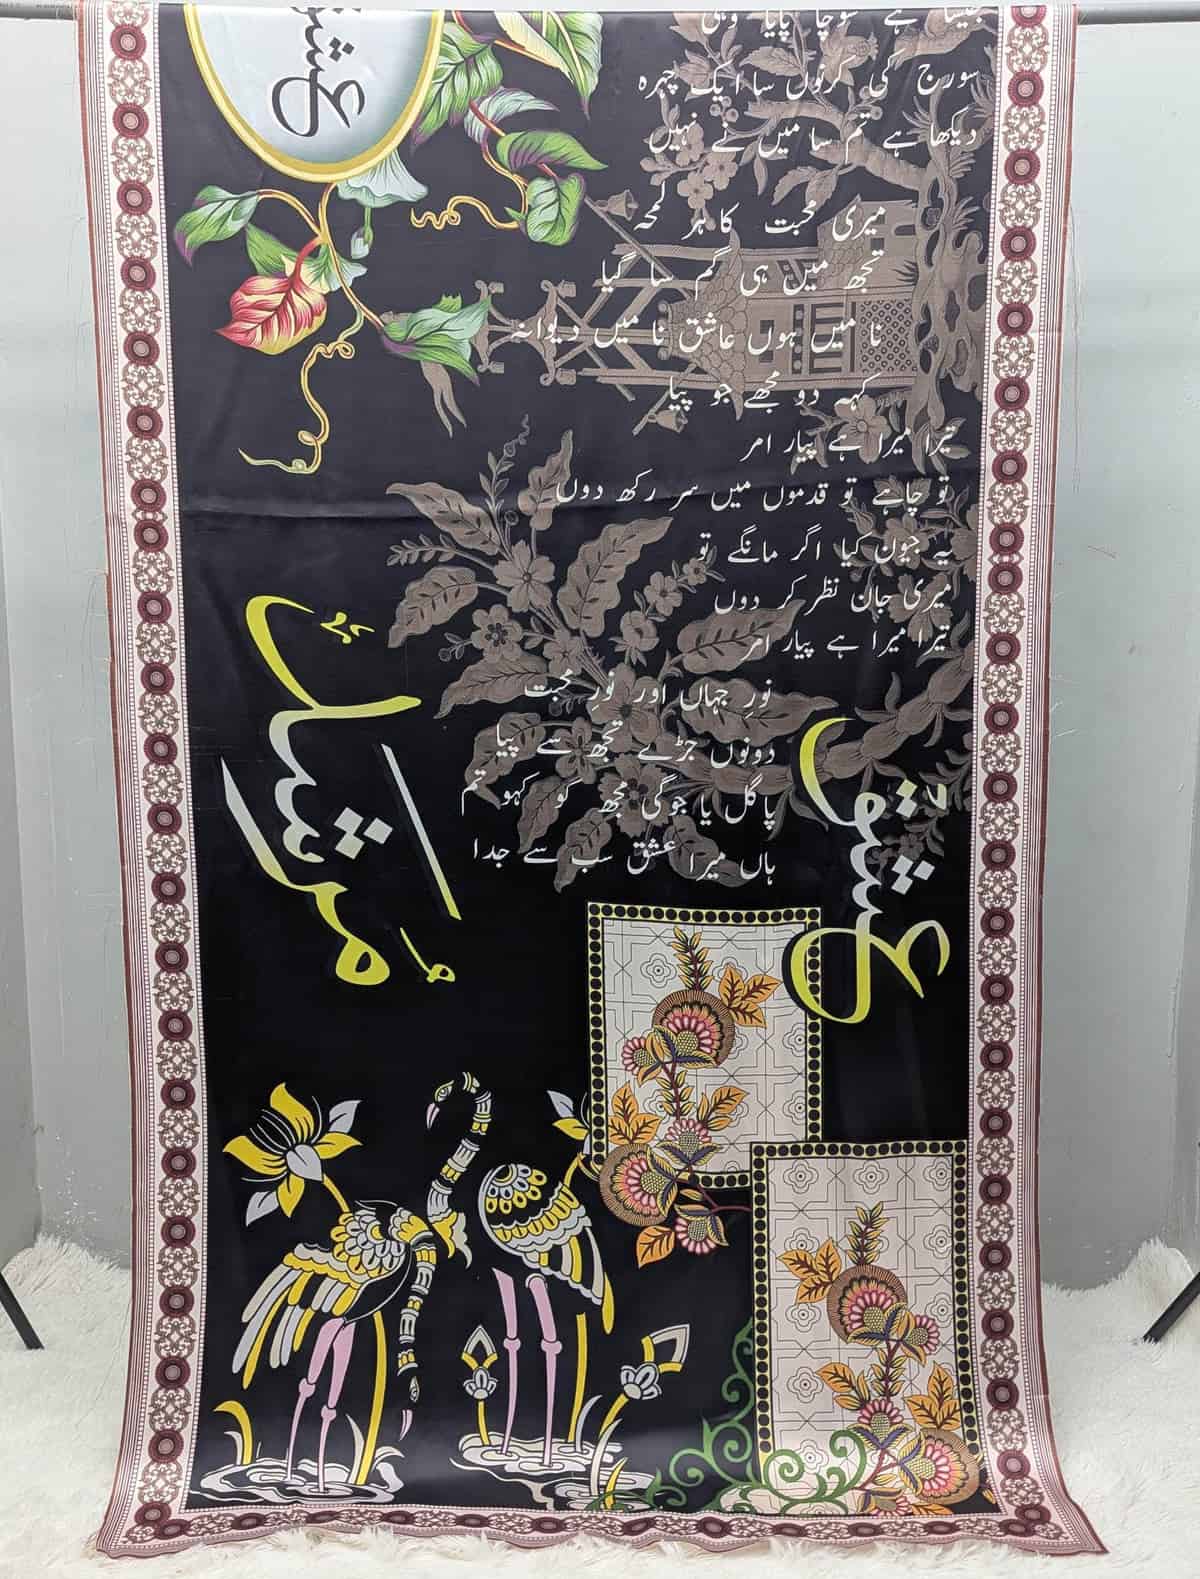 عشق
جیسا ہے سوچا پایا وہی
سورج کی کرنوں سا ایک چہرہ
دیکھا ہے تم سا میں نے نہیں
میری محبت کا ہر لمحہ
تجھ میں ہی گم سا گیا
نا میں ہوں عاشق نا میں دیوانہ
کہہ دو مجھے جو پیا
تیرا میرا ہے پیار امر
تو چاہے تو قدموں میں سر رکھ دوں
یہ جیون کیا اگر مانگے تو
میری جان نظر کر دوں
تیرا میرا ہے پیار امر
نورِ جہاں اور نورِ محبت
دونوں جڑے تجھ سے پیا
پاگل یا جوگی مجھ کو کہو تم
ہاں میرا عشق سب سے جدا
عشق
مُرشد